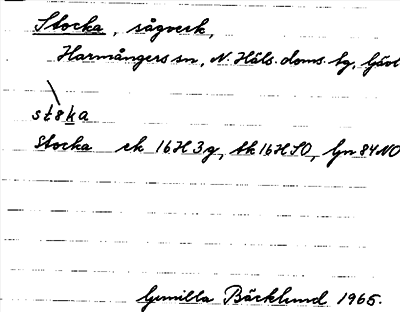 Stocka, sågverk,
Harmångers sn, N. Häls. doms. tg, Gävl
st8ka
Stocka ek 16H3g, tk16HSO, Gn 84NO
Gunilla Bäcklund 1965.